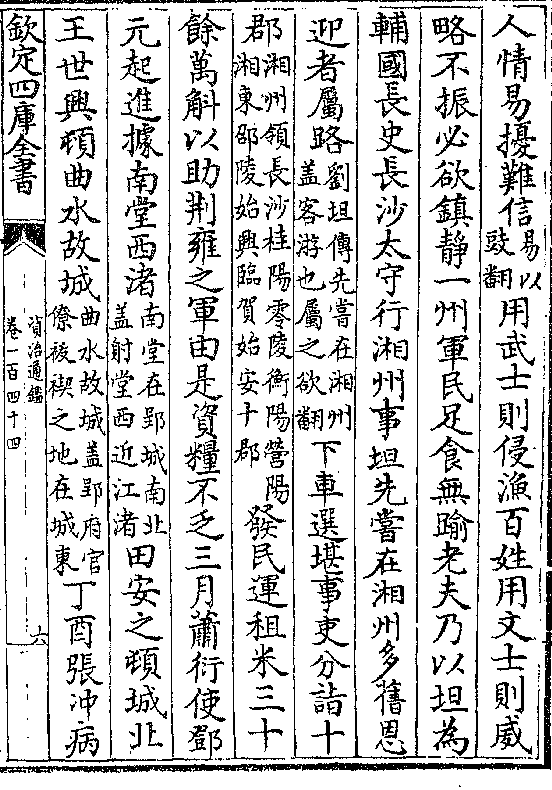 人情易擾難信易以豉翻用武士則侵漁百姓用文士則威
略不振必欲鎮静一州軍民足食無踰老夫乃以坦為
輔國長史長沙太守行湘州事坦先嘗在湘州多舊恩
迎者屬路劉坦傳先嘗在湘州盖客游也屬之欲翻下車選堪事吏分詣十
郡湘州領長沙桂陽零陵衡陽營陽湘東邵陵始興臨賀始安十郡發民運租米三十
餘萬斛以助荆雍之軍由是資糧不乏三月蕭衍使鄧
元起進據南堂西渚南堂在郢城南北盖射堂西近江渚田安之頓城北
王世興頓曲水故城曲水故城盖郢府官僚祓禊之地在城東丁酉張冲病
欽定四庫全書
資治通鑑
卷一百四十四
六